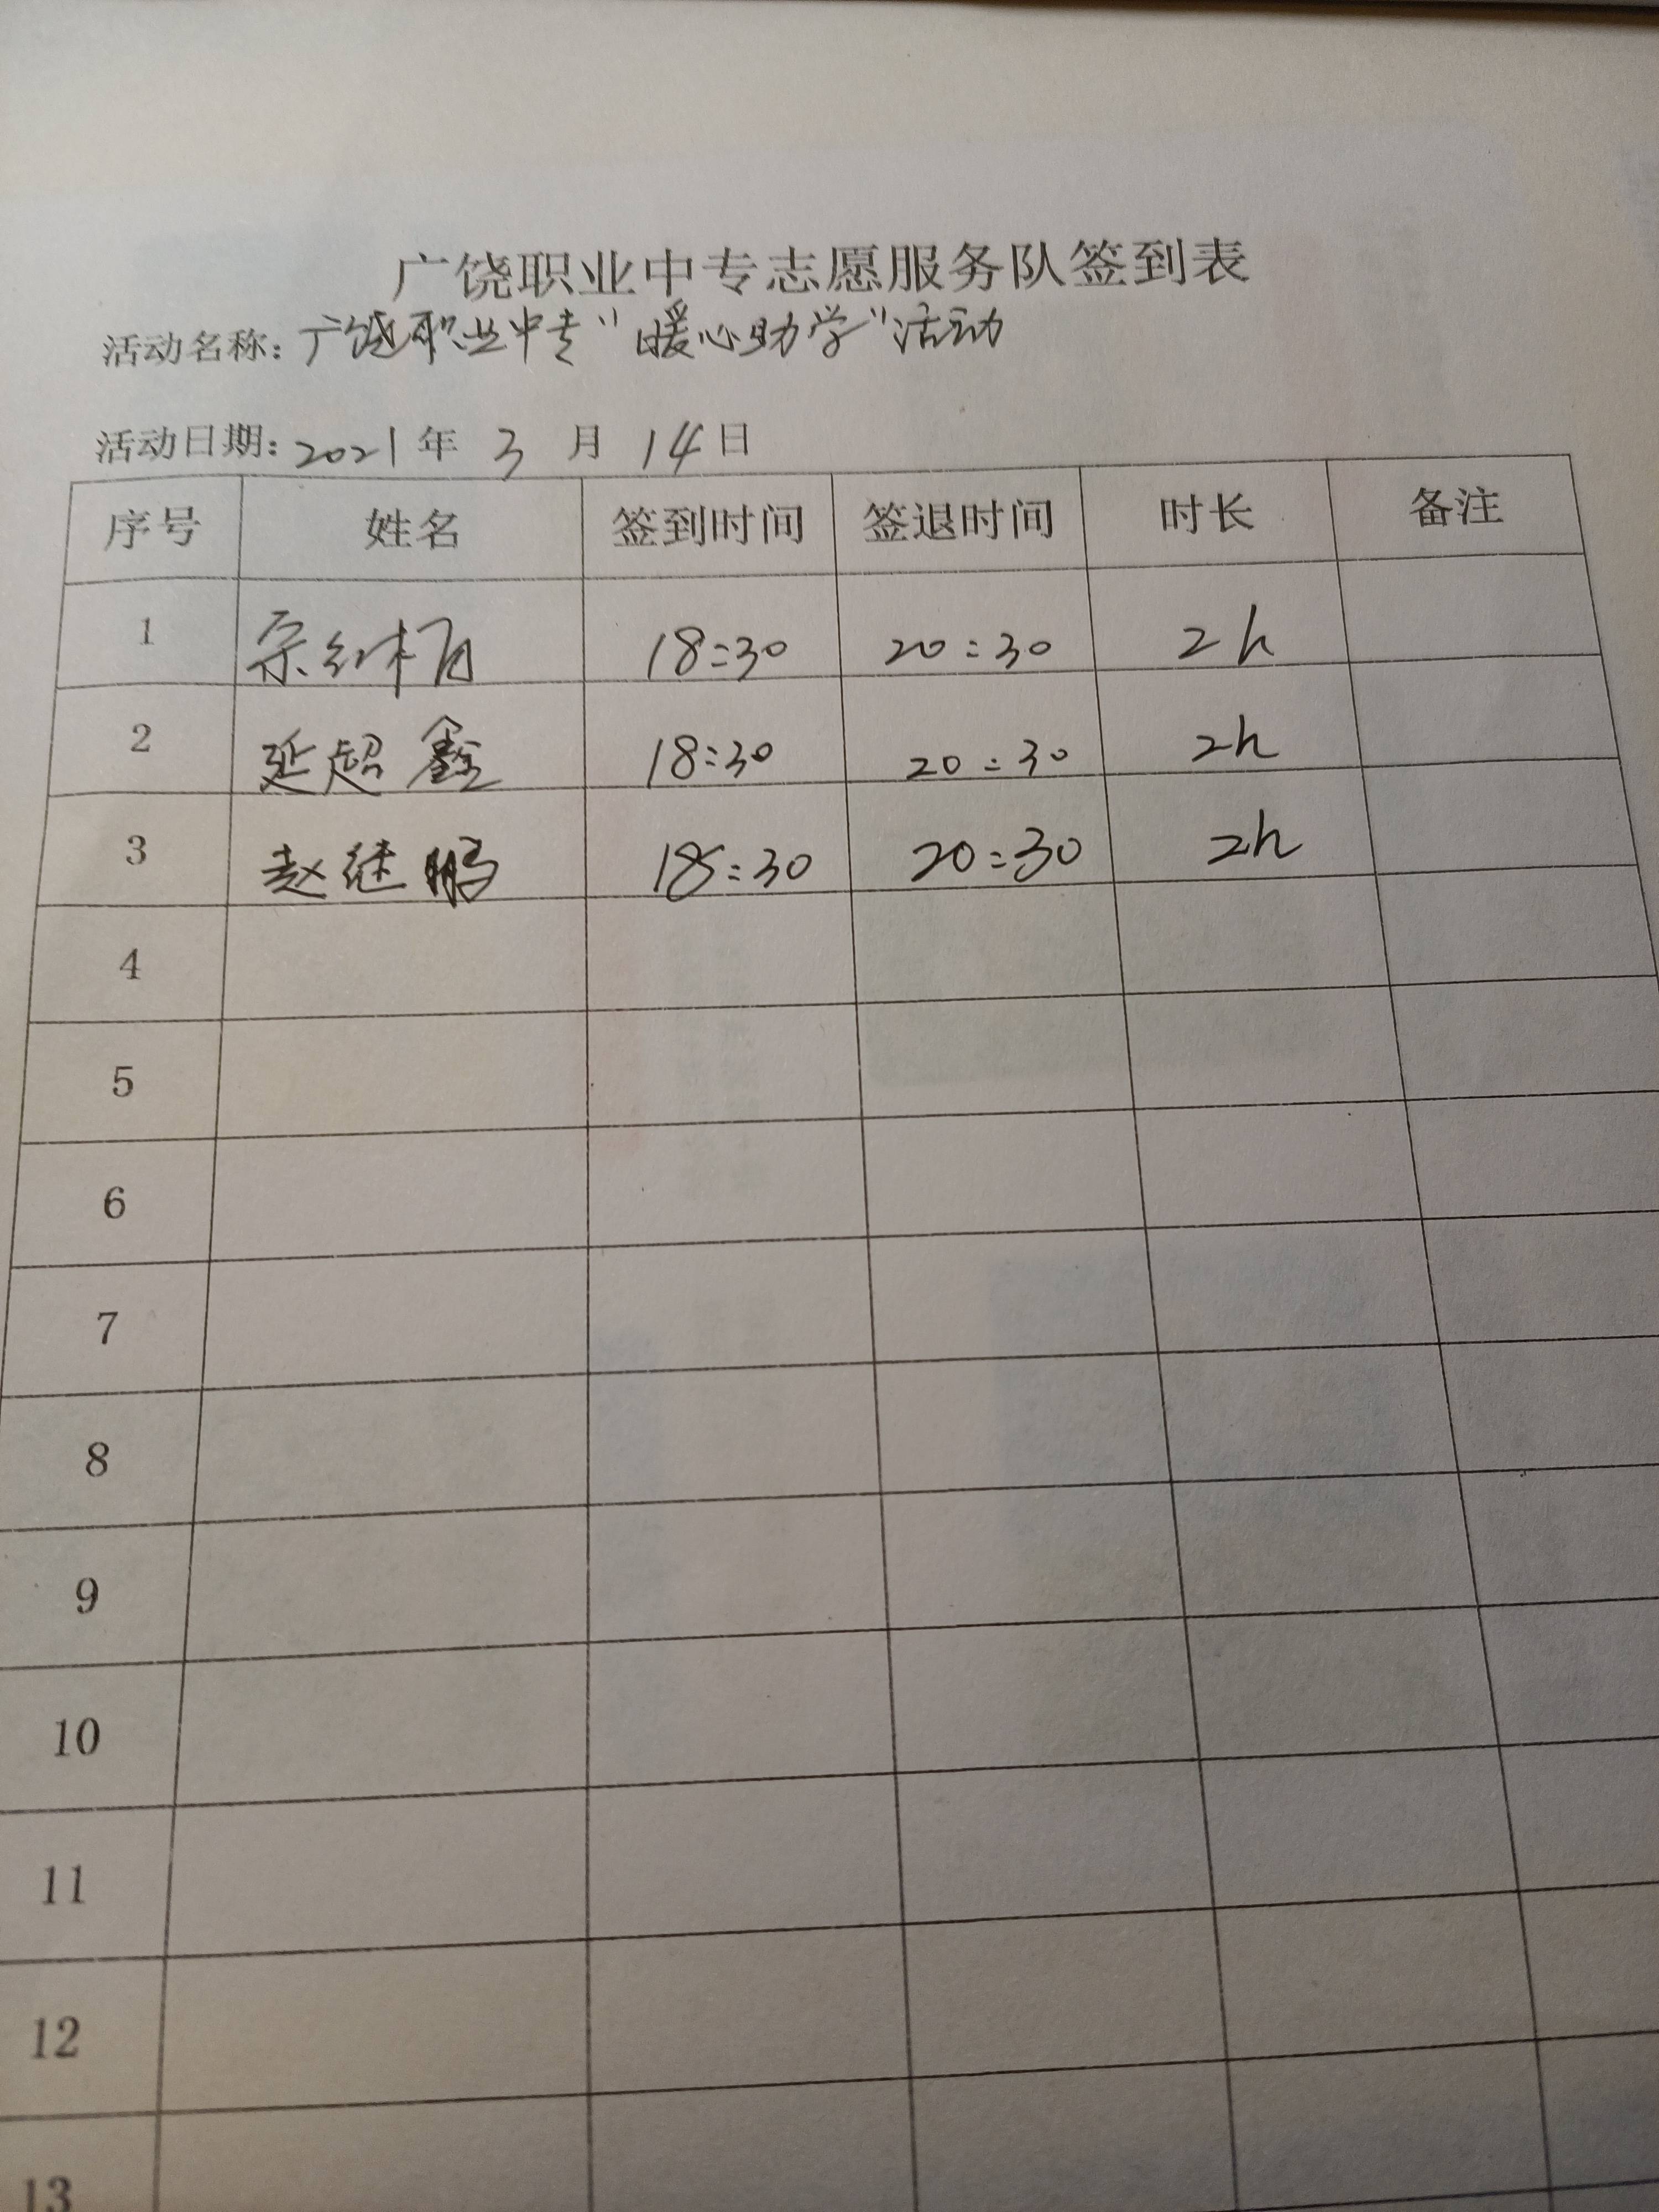 广饶职业中专志愿服务队签到表
活动名称：广饶职业中专“暖心助学”活动
活动日期：2021年 3 月 14日
序号 姓名 签到时间 签退时间 时长 备注
1 18:30 20:30 2h
2 延超鑫 18:30 20:30 2h
3 赵继鹏 18:30 20:30 2h
4
5
6
7
8
9
10
11
12
13